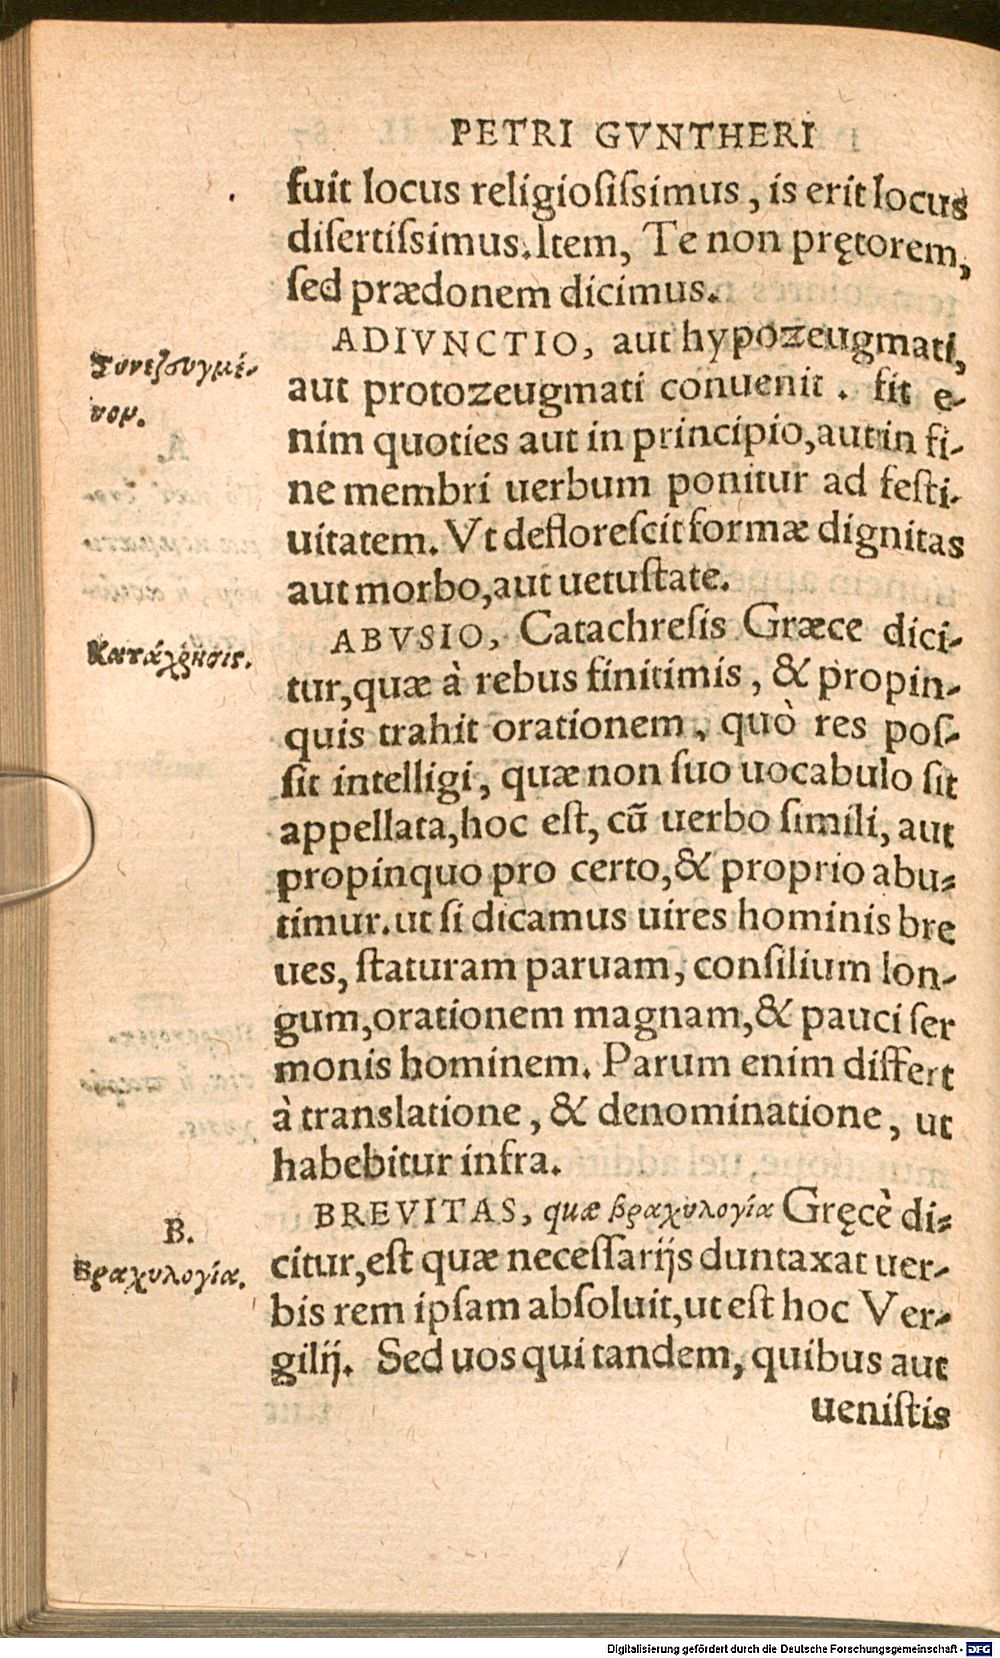 PETRI GVNTHERI
fuit locus religiosiſsimus, is erit locus
diſertiſsimus. Item, Te non prętorem,
ſed prædonem dicimus.
ADIVNCTIO, aut hypozeugmati,
aut protozeugmati conuenit. fit e-
nim quoties aut in principio, aut in fi-
ne membri uerbum ponitur ad feſti-
uitatem. Vt defloreſcit formæ dignitas
aut morbo, aut uetuſtate.
ABVSIO, Catachreſis Græce dici-
tur, quæ à rebus finitimis, & propin-
quis trahit orationem, quò res poſ-
ſit intelligi, quæ non ſuo uocabulo ſit
appellata, hoc eſt, cũ uerbo ſimili, aut
propinquo pro certo, & proprio abu-
timur. ut ſi dicamus uires hominis bre
ues, ſtaturam paruam, conſilium lon-
gum, orationem magnam, & pauci ſer
monis hominem. Parum enim differt
à translatione, & denominatione, ut
habebitur infra.
BREVITAS, quæ βραχυλογία Gręcè di-
citur, eſt quæ neceſſarijs duntaxat uer-
bis rem ipſam abſoluit, ut eſt hoc Ver-
gilij. Sed uos qui tandem, quibus aut
ueniſtis
συνεζευγμέ-
νον.
Κατάχρησις.
B.
Βραχυλογία.
Digitalisierung gefördert durch die Deutsche Forschungsgemeinschaft - DFG